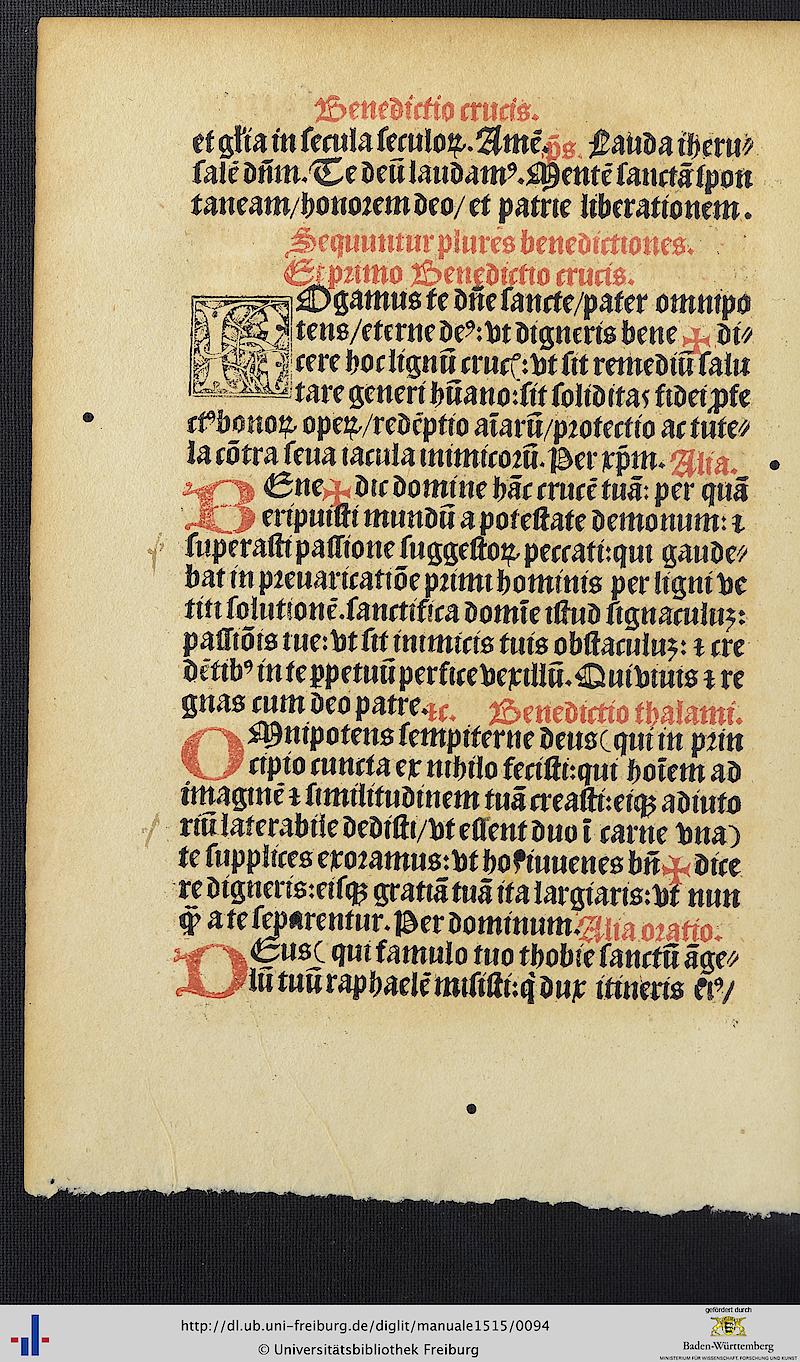 Benedictio crucis.
et gl̄ia in secula seculoꝝ. Amē. p̄s. Lauda iheru⸗
salē dn̄m. Te deū laudamꝰ. Mentē sanctā spon
taneam/ honorem deo/ et patrie liberationem.
Sequuntur plures benedictiones.
Et primo Benedictio crucis.
ROgamus te dn̄e sancte/ pater omnipo
tens/ eterne deꝰ: vt digneris bene ✠ di⸗
cere hoc lignū crucꝭ: vt sit remediū salu
tare generi hūano: sit soliditaꝫ fidei ꝓfe
ctꝰ bonoꝝ opeꝝ/ redēptio aīarū/ protectio ac tute⸗
la cōtra seua iacula inimicorū. Per xp̄m. Alia.
BEne ✠ dic domine hāc crucē tuā: per quā
eripuisti mundū a potestate demonum: ⁊
superasti passione suggestoꝝ peccati: qui gaude⸗
bat in preuaricatiōe primi hominis per ligni ve
titi solutionē. sanctifica domīe istud signaculuꝫ:
passiōis tue: vt sit inimicis tuis obstaculuꝫ: ⁊ cre
dētibꝰ in te ꝑpetuū perfice vexillū. Qui viuis ⁊ re
gnas cum deo patre. ⁊c. Benedictio thalami.
OMnipotens sempiterne deus (qui in prin
cipio cuncta ex nihilo fecisti: qui hoīem ad
imaginē ⁊ similitudinem tuā creasti: eiqꝫ adiuto
riū laterabile dedisti/ vt essent duo ī carne vna)
te supplices exoramus: vt hos iuuenes bn̄ ✠ dice
re digneris: eisqꝫ gratiā tuā ita largiaris: vt nun
qꝫ̄ a te separentur. Per dominum. Alia oratio.
DEus ( qui famulo tuo thobie sanctū āge⸗
lū tuū raphaelē misisti: q̇ dux itineris eiꝰ/
http://dl.ub.uni-freiburg.de/diglit/manuale1515/0094
© Universitätsbibliothek Freiburg
gefördert durch
Baden-Württemberg
MINISTERIUM FÜR WISSENSCHAFT, FORSCHUNG UND KUNST